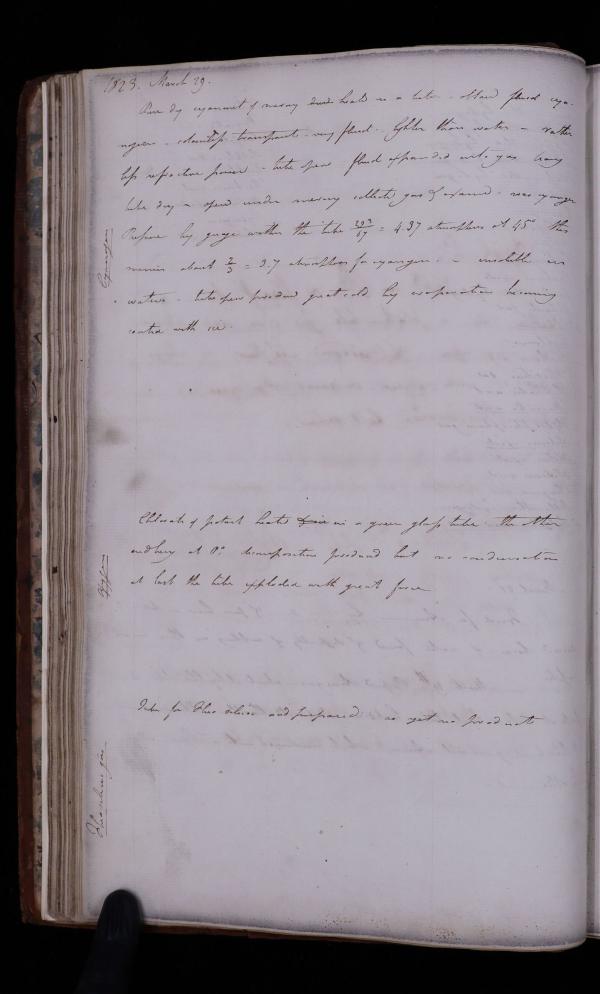 1823. March 29.
Pure dry cyanuret of mercury heated in a tube - obtained fluid cyan-
ogen - colourless transparent - very fluid. Lighter than water - rather
less refractive power - tube open fluid expanded into gas
tube dry & opened under mercury collected gas & examined - was cyanogen
Pressure by guage within the tube = 4.37 atmosphere at 45° this
mercury about = 3.7 atmospheres for cyanogen - insoluble in
water - tube open produced great cold by evaporation becoming
coated with ice.
Cyanogen
Chlorate of potash heated in a green glass tube the other
end being at 0° decomposition produced but no condensation
at last the tube exploded with great force
Oxygen
Tube for Fluo silicic acid prepared - as yet no product
Fluosilicic gas